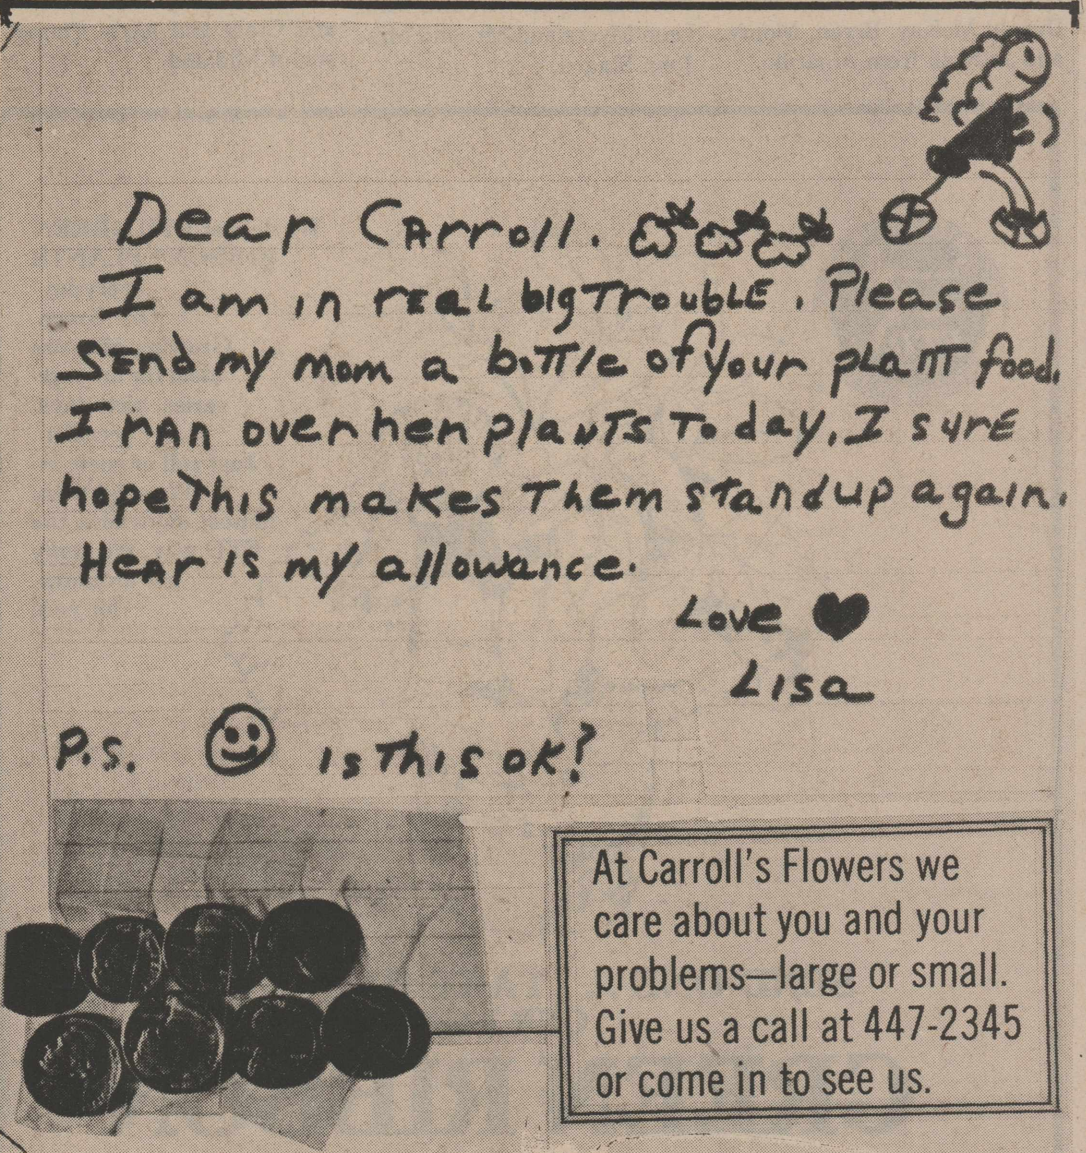 Dear Carroll.
I am in real big Trouble. Please
Send my mom a bottle of your plant food.
I ran over her plants Today. I sure
hope This makes Them stand up again.
Hear is my allowance.
Love
Lisa
P.S. is This ok?
At Carroll's Flowers we
care about you and your
problems—large or small.
Give us a call at 447-2345
or come in to see us.